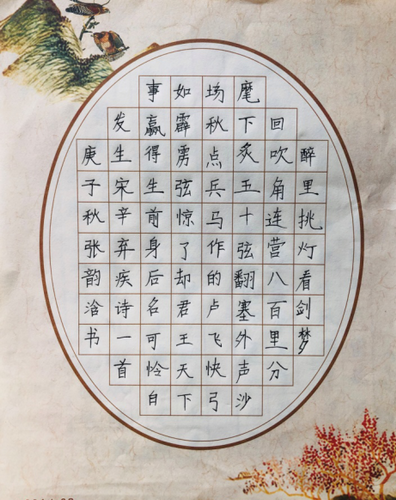 醉里挑灯看剑梦
回吹角连营八百里分
麾下炙五十弦翻塞外声沙
场秋点兵马作的卢飞快弓
如霹雳弦惊了却君王天下
事赢得生前身后名可怜白
发生宋辛弃疾诗一首
庚子秋张韵洽书